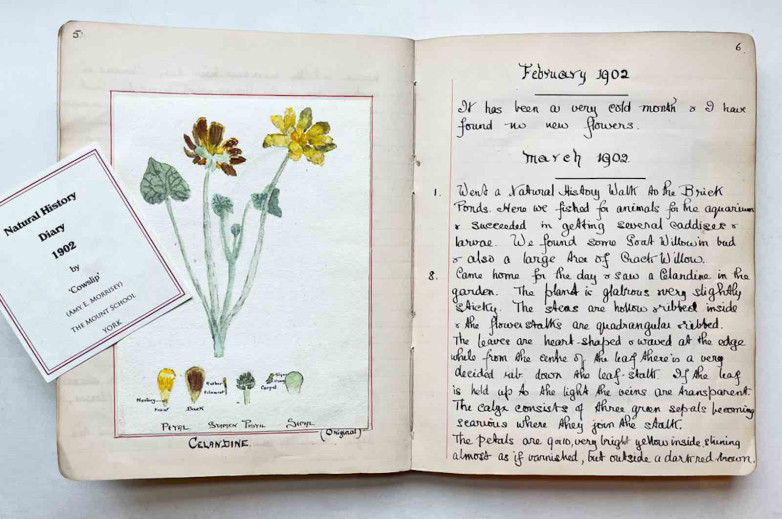 5
Natural History
Diary
1902
by
'Cowslip'
(AMY E. MORRISEY)
THE MOUNT SCHOOL
YORK
Front
Back
Carpel
PETAL STAMEN PISTIL SEPAL
CELANDINE
(Original)
6
February 1902
It has been a very cold month & I have
found no new flowers.
March 1902.
1. Went a Natural History Walk to the Brick
Ponds. Here we fished for animals for the aquarium
& succeeded in getting several caddises &
larvae. We found some Goat Willow in bud
& also a large tree of Crack Willow.
8. Came home for the day & saw a Celandine in the
garden. The plant is glabrous very slightly
sticky. The stems are hollow & ribbed inside
& the flower stalks are quadrangular & ribbed.
The leaves are heart-shaped & waved at the edge
while from the centre of the leaf there is a very
decided rib down the leaf-stalk. If the leaf
is held up to the light the veins are transparent.
The calyx consists of three green sepals becoming
scarious where they join the stalk.
The petals are gold, very bright yellow inside, shining
almost as if varnished, but outside a dark red brown.